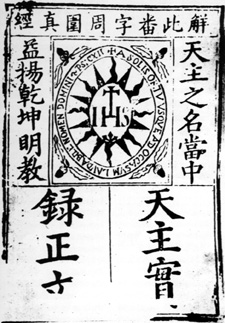 解此番字周圍真經
天主之名當中
益揚乾坤明教
A SOLIS ORTV VSQVE AD OCCASVM LAVDABILE NOMEN DOMINI PS CXII
IHS
天主實
録正